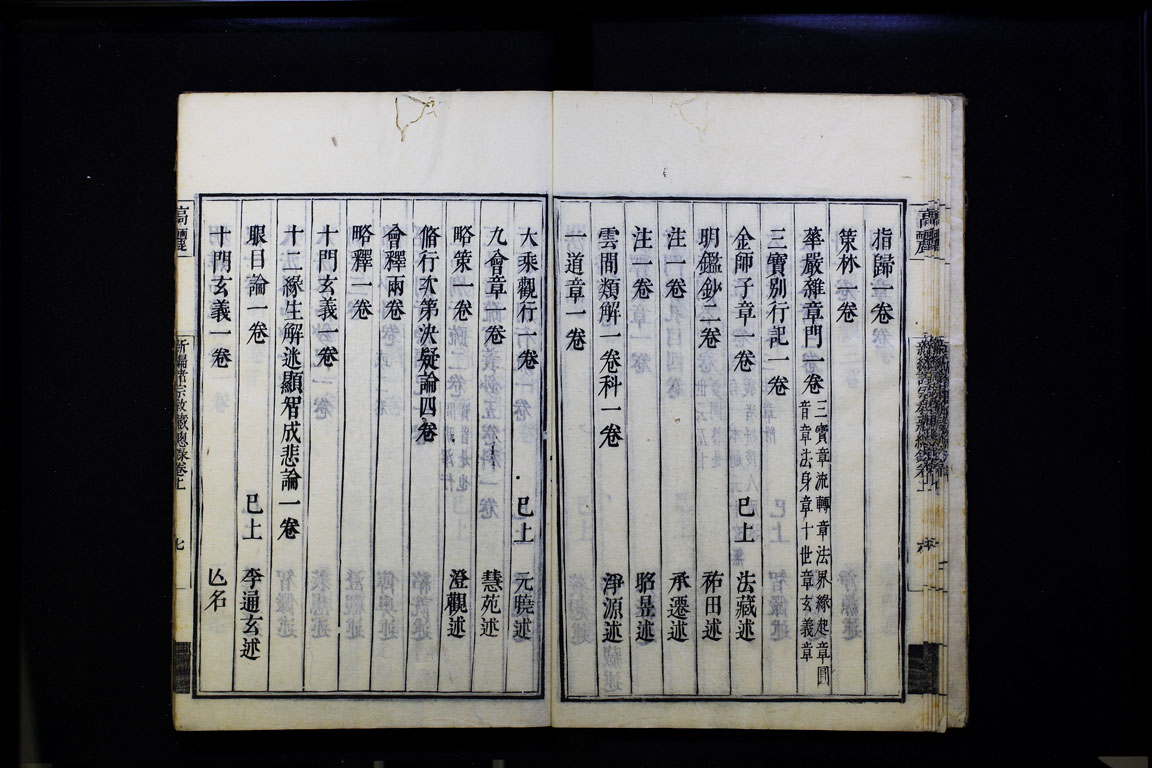 指歸一卷
策林一卷
華嚴雜章門一卷 三寶章流轉章法界緣起章圓
音章法身章十世章玄義章
三寶別行記一卷
金師子章一卷 已上 法藏述
明鑑鈔二卷 祐田述
注一卷 承遷述
注一卷 昭昱述
雲間類解一卷科一卷 淨源述
一道章一卷
大乘觀行一卷 已上 元曉述
九會章一卷 慧苑述
略策一卷 澄觀述
脩行次第決疑論四卷
會釋兩卷
略釋一卷
十門玄義一卷
十二緣生解迷顯智成悲論一卷
眼目論一卷 已上 李通玄述
十門玄義一卷 亾名
高麗
新編諸宗教藏總錄卷上
七